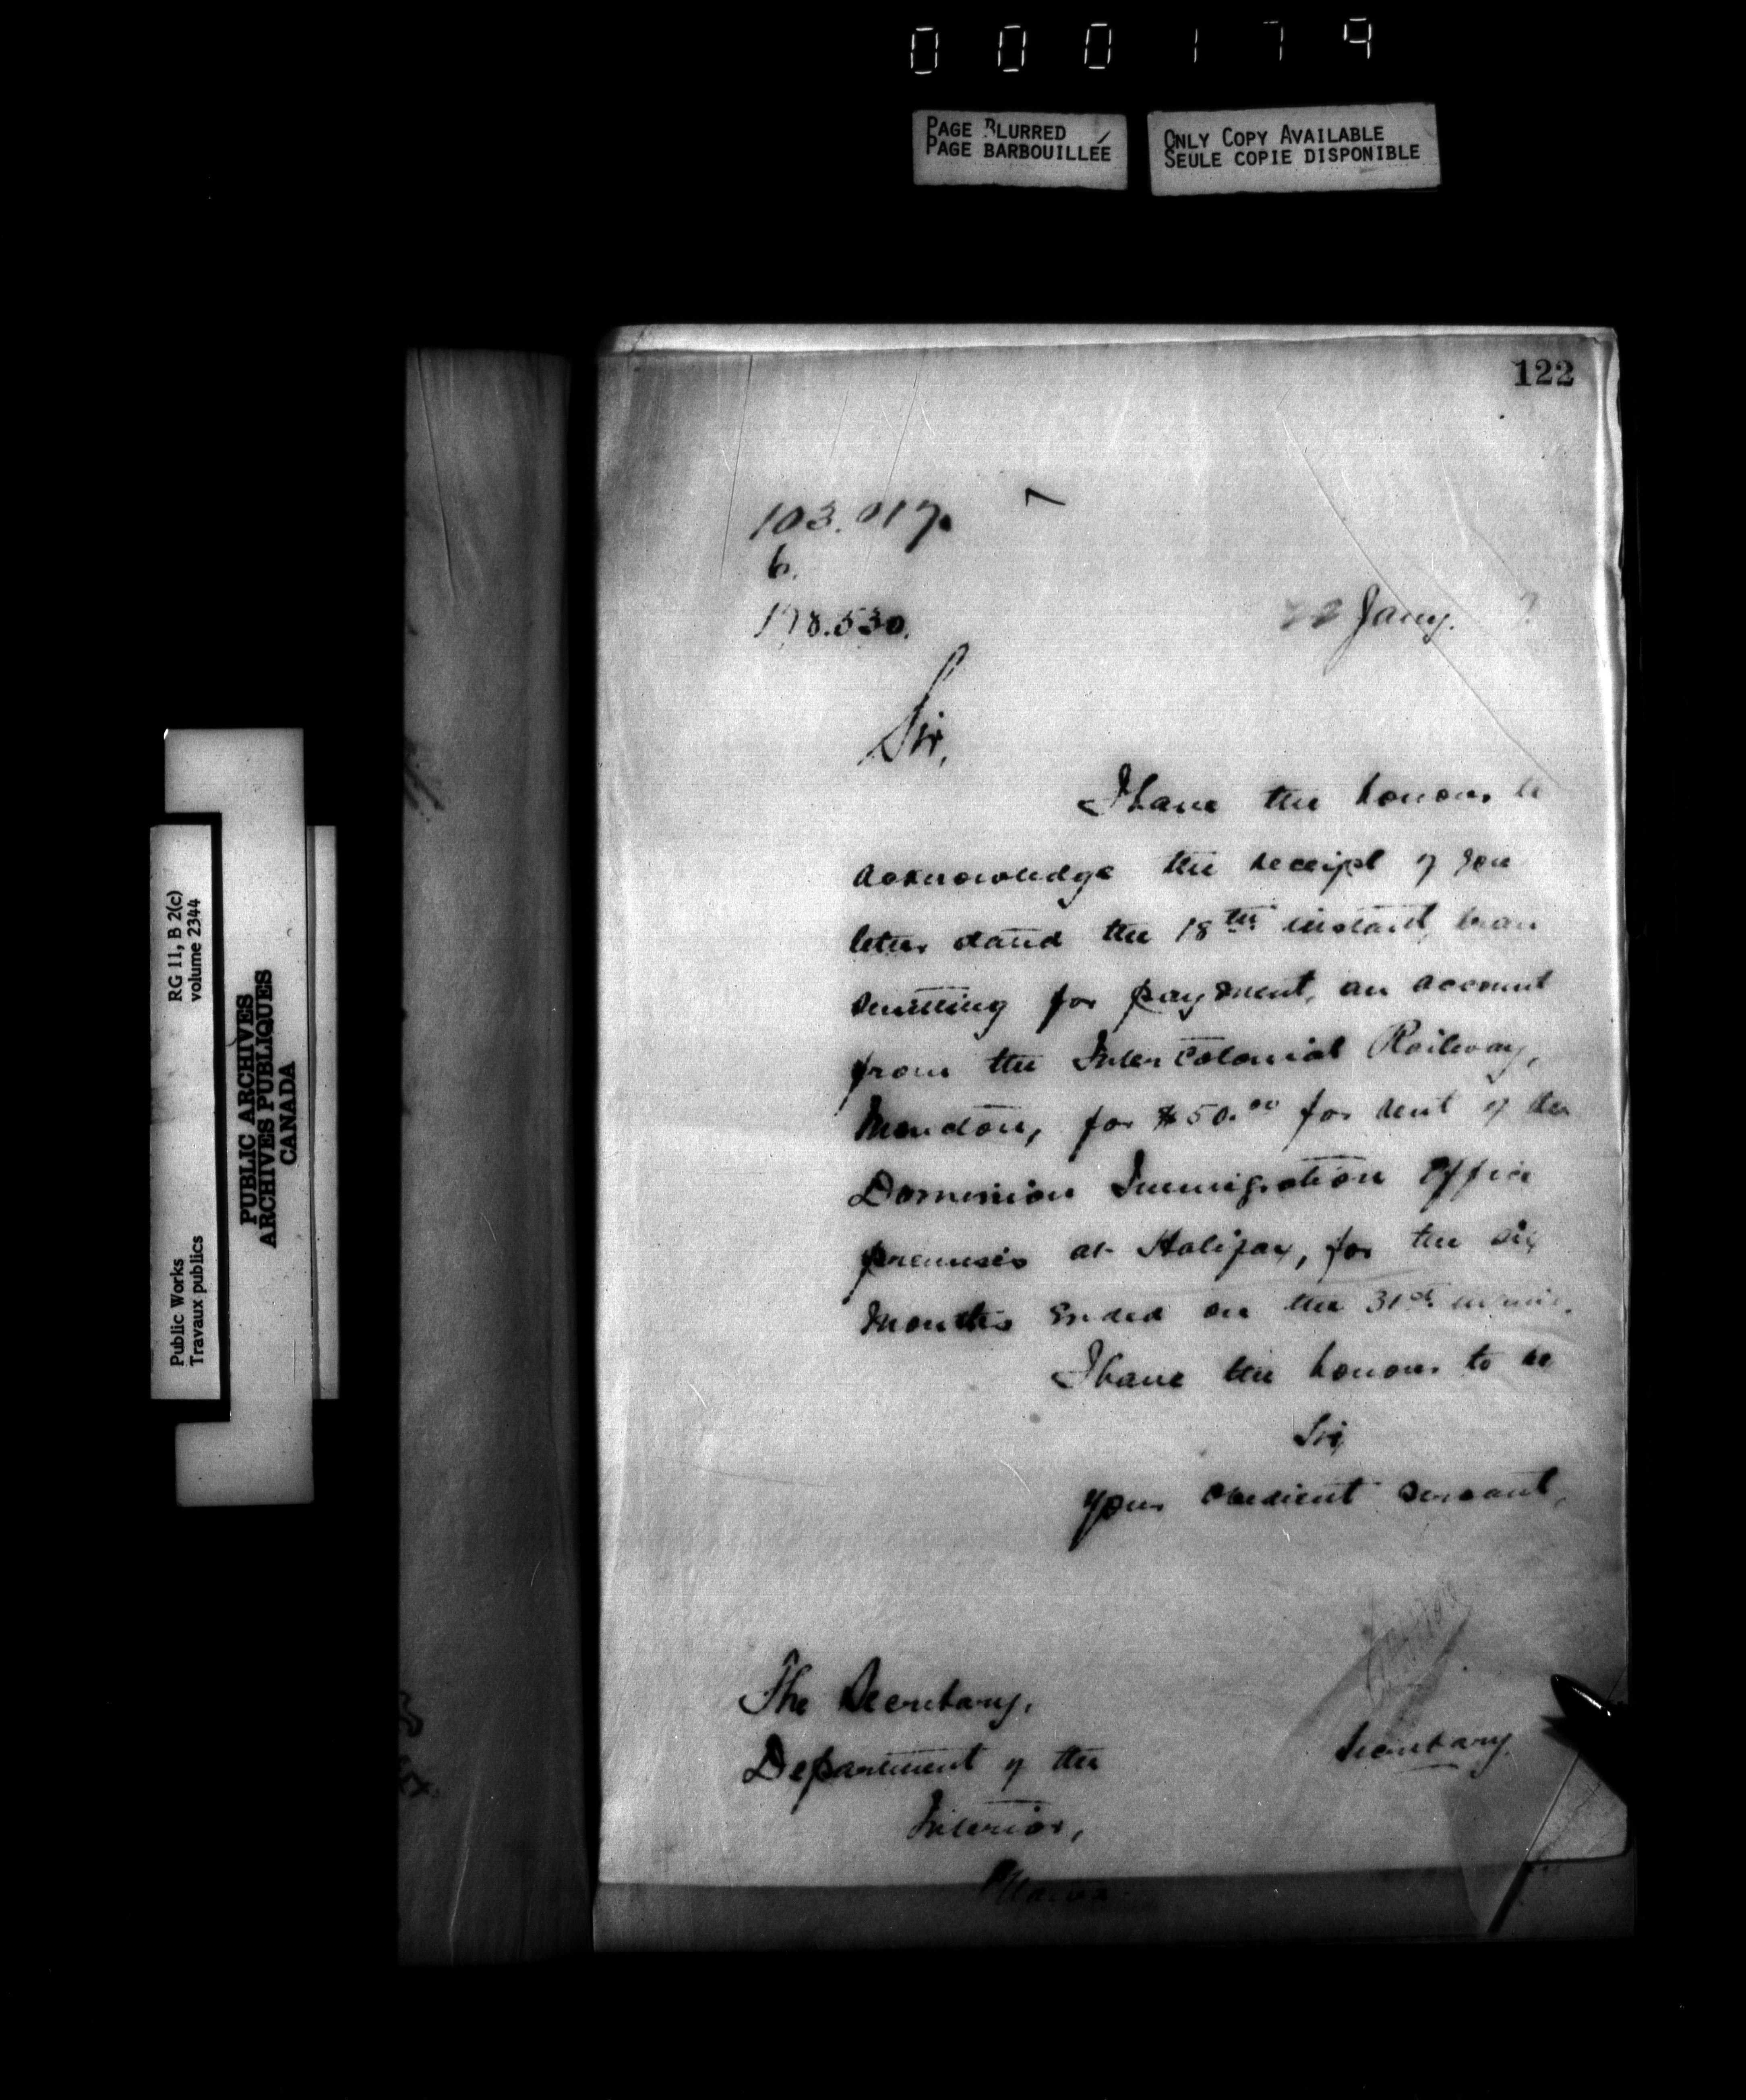 0 0 0 1 7 9
PAGE BLURRED
PAGE BARBOUILLÉE
ONLY COPY AVAILABLE
SEULE COPIE DISPONIBLE
122
103.017.
6.
178.530.
22 Jany.
Sir,
I have the honour to
acknowledge the receipt of your
letter dated the 18th instant, trans
mitting for payment, an account
from the Intercolonial Railway,
Moncton, for $50.00 for rent of the
Dominion Immigration Office
premises at Halifax, for the six
months ended on the 31st
I have the honour to be
Sir,
Your obedient servant,
Secretary.
The Secretary,
Department of the
Interior,
Ottawa
RG 11, B 2(c)
volume 2344
Public Works
Travaux publics
PUBLIC ARCHIVES
ARCHIVES PUBLIQUES
CANADA